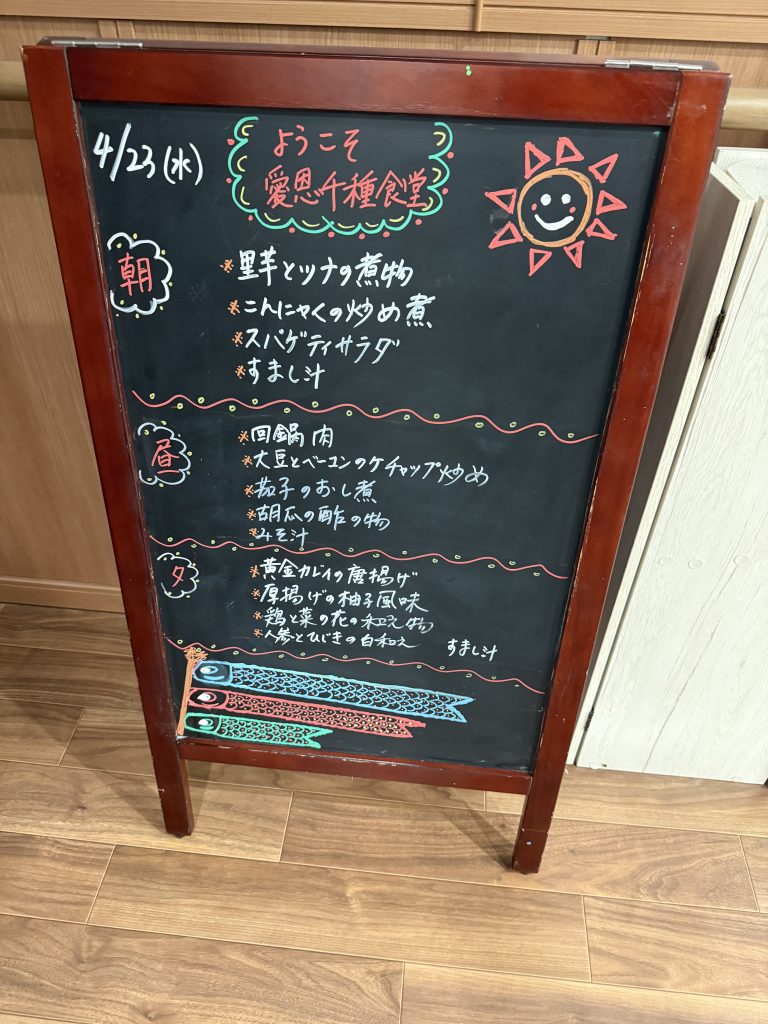 4/23(水)
ようこそ
愛恩千種食堂
朝
※里芋とツナの煮物
※こんにゃくの炒め煮
※スパゲティサラダ
※すまし汁
昼
※回鍋肉
※大豆とベーコンのケチャップ炒め
※茄子のおし煮
※胡瓜の酢の物
※みそ汁
夕
※黄金カレイの唐揚げ
※厚揚げの柚子風味
※鶏と菜の花の和え物
※人参とひじきの白和え
すまし汁